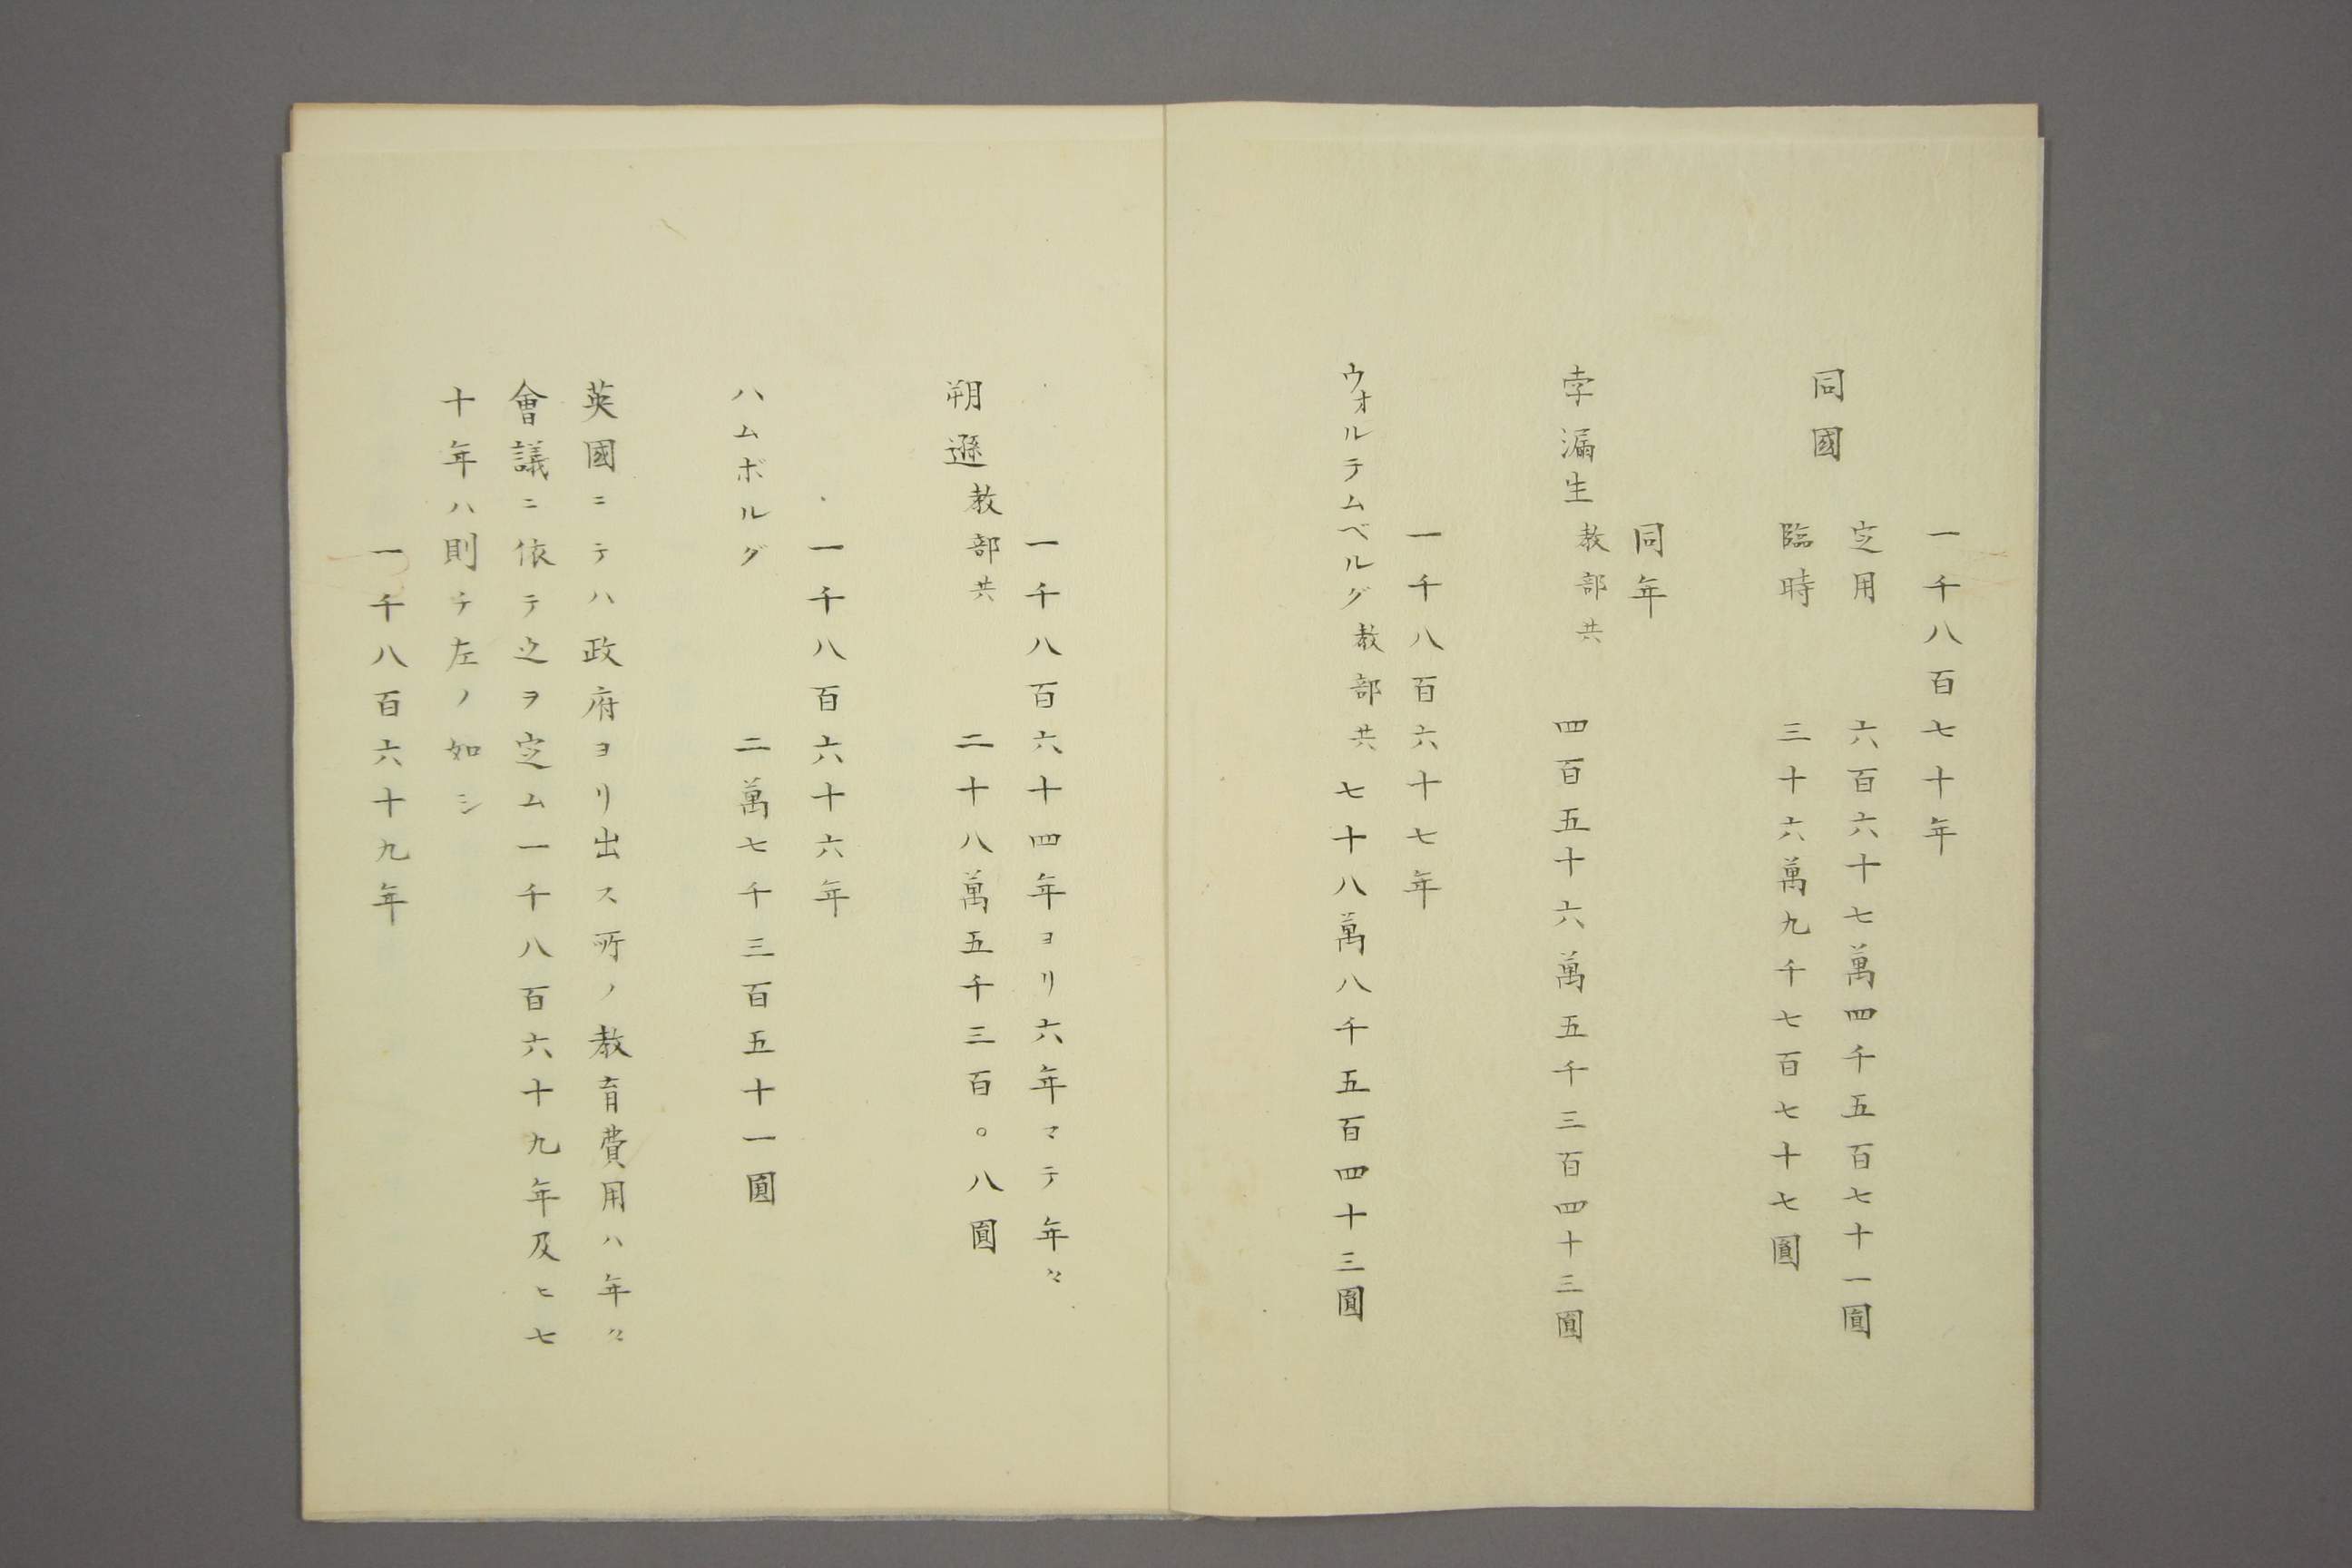 一千八百七十年
同國
定用 六百六十七萬四千五百七十一圓
臨時 三十六萬九千七百七十七圓
同年
孛漏生教部共 四百五十六萬五千三百四十三圓
一千八百六十七年
ウォルテムベルグ教部共 七十八萬八千五百四十三圓
一千八百六十四年ヨリ六年マテ年々
朔遜教部共 二十八萬五千三百〇八圓
一千八百六十六年
ハムボルグ 二萬七千三百五十一圓
英國ニテハ政府ヨリ出ス所ノ教育費用ハ年々
會議ニ依テ之ヲ定ム一千八百六十九年及ヒ七
十年ハ則チ左ノ如シ
一千八百六十九年